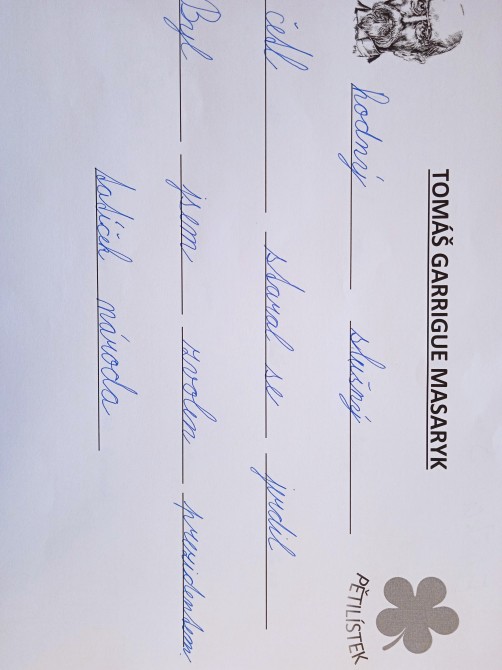 TOMÁŠ GARRIGUE MASARYK
PĚTILÍSTEK
hodný slušný
četl staral se jezdil
Byl jsem zvolen presidentem.
tatíček národa